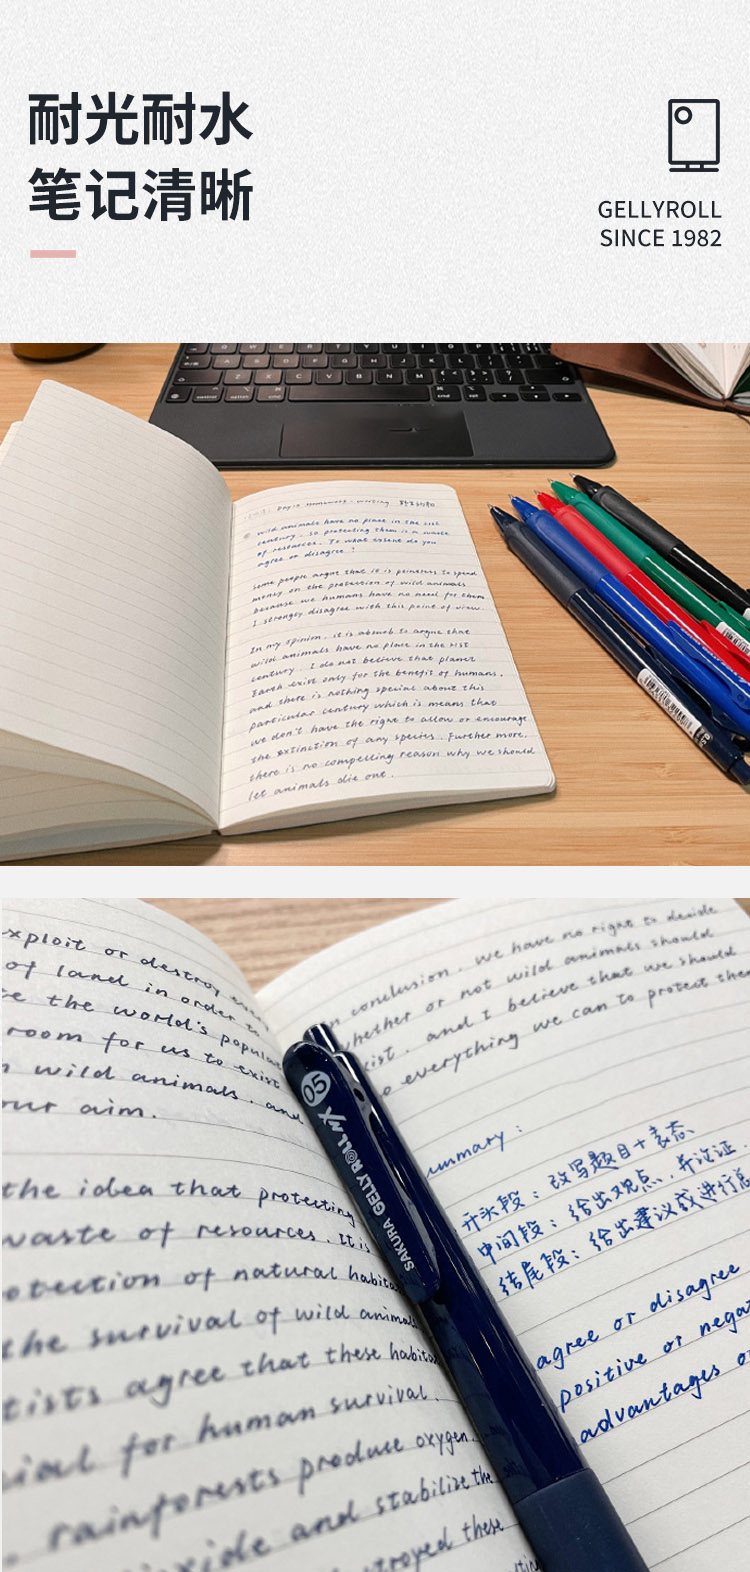 耐光耐水
笔记清晰
GELLYROLL
SINCE 1982
Topic Homework. Writing
wild animals have no place in the 21st
century. so protecting them is a waste
of resources. To what extent do you
agree or disagree?
some people argue that it is pointless to spend
money on the protection of wild animals
because we humans have no need for them
I strongly disagree with this point of view.
In my opinion. it is absurb to argue that
wild animals have no place in the 21st
century. I do not believe that planet
Earth exist only for the benefit of humans.
and there is nothing special about this
particular century which is means that
we don't have the right to allow or encourage
the extinction of any species. Further more.
there is no compelling reason why we should
let animals die out.
xploit or destroy every
of land in order to
te the world's populat
room for us to exist
wild animals. and
our aim.
the idea that protecting
waste of resources. It is
otection of natural habita
the survival of wild animals
tists agree that these habitat
ial for human survival.
rainforests produce oxygen.
oxide and stabilize the
stroyed these
05
SAKURA GELLY ROLL NX
In conclusion. we have no right to decide
whether or not wild animals should
exist. and I believe that we should
do everything we can to protect them
summary:
开头段：改写题目+表态
中间段：给出观点，并论证.
结尾段：给出建议或进行总
agree or disagree
positive or nega
advantages o